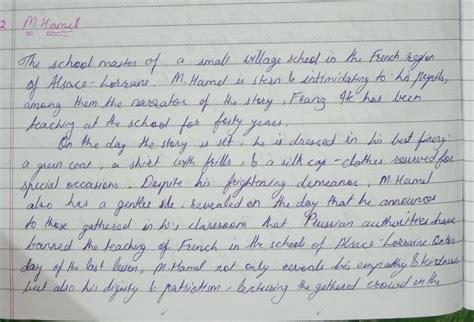 2 M. Hamel
The school master of a small village school in the French region
of Alsace-Lorraine. M. Hamel is stern & intimidating to his pupils,
among them the narrator of the story, Franz. He has been
teaching at the school for forty years.
On the day the story is set, he is dressed in his best finery:
a green coat, a shirt with frills, & a silk cap - clothes reserved for
special occasions. Despite his frightening demeanor, M. Hamel
also has a gentler side, revealed on the day that he announces
to those gathered in his classroom that Prussian authorities have
banned the teaching of French in the schools of Alsace-Lorraine. On the
day of the last lesson, M. Hamel not only reveals his empathy & kindness
but also his dignity & patriotism - lecturing the gathered crowd on the